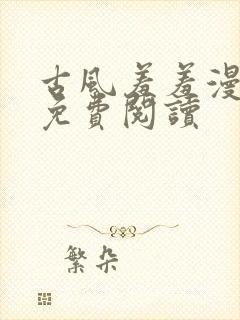 古风羞羞漫
免費閱讀
繁朵